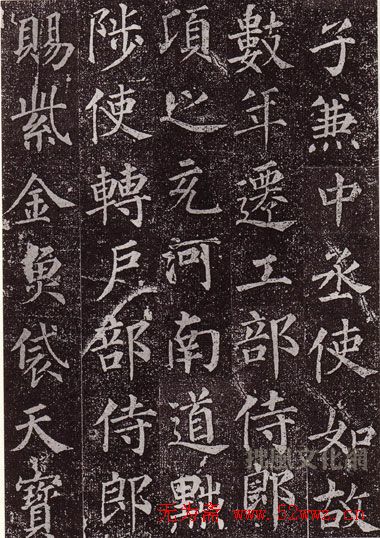 子兼中丞使如故
數年遷工部侍郎
頃之充河南道黜
陟使轉戶部侍郎
賜紫金魚袋天寶
拙風文化網
无为斋 www.52wwz.cn